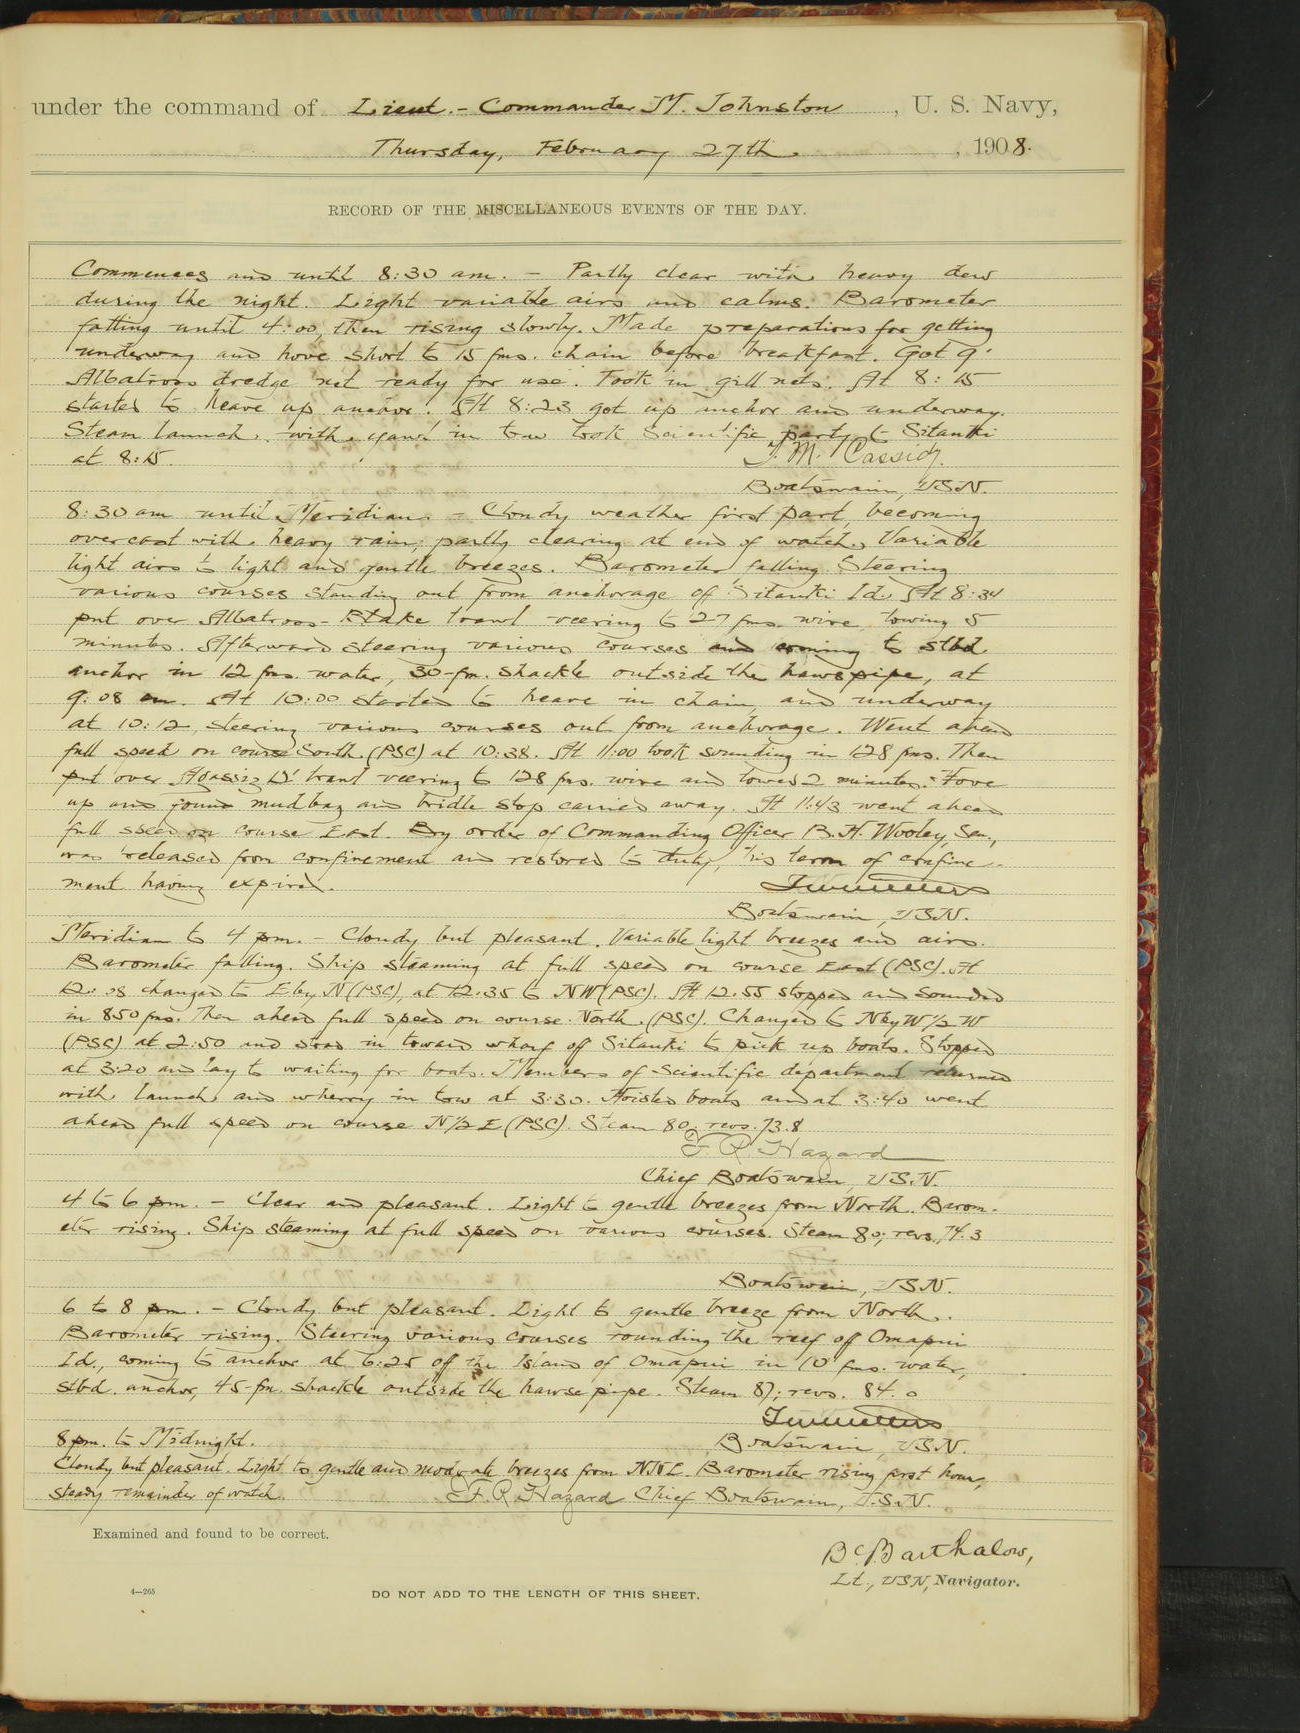 under the command of Lieut.-Commander M. Johnston, U. S. Navy,
Thursday, February 27th, 1908.
RECORD OF THE MISCELLANEOUS EVENTS OF THE DAY.
Commences and until 8:30 am. - Partly clear with heavy dew
during the night. Light variable airs and calms. Barometer
falling until 4:00, then rising slowly. Made preparations for getting
underway and hove short to 15 fms. chain before breakfast. Got 9'
Albatross dredge net ready for use. Took in gill nets. At 8:15
started to heave up anchor. At 8:23 got up anchor and underway.
Steam launch with yawl in tow took Scientific party to Sitanki
at 8:15. J. M. Cassidy.
Boatswain, USN.
8:30 am until Meridian. - Cloudy weather first part, becoming
overcast with heavy rain; partly clearing at end of watch. Variable
light airs to light and gentle breezes. Barometer falling. Steering
various courses standing out from anchorage off Sitanki Id. At 8:34
put over Albatross-Blake trawl veering to 27 fms. wire, towing 5
minutes. Afterward steering various courses and coming to stbd
anchor in 12 fms. water, 30-fm. shackle outside the hawspipe, at
9:08 am. At 10:00 started to heave in chain, and underway
at 10:12, steering various courses out from anchorage. Went ahead
full speed on course South (PSC) at 10:38. At 11:00 took sounding in 128 fms. Then
put over Agassiz 12' trawl veering to 128 fms. wire and towed 2 minutes. Hove
up and found mudbag and bridle stop carried away. At 11:43 went ahead
full speed on course East. By order of Commanding Officer B. H. Wooley, Sea.,
was released from confinement and restored to duty, his term of confine-
ment having expired.
Boatswain, USN.
Meridian to 4 pm. - Cloudy but pleasant. Variable light breezes and airs.
Barometer falling. Ship steaming at full speed on course East (PSC). At
12:08 changed to E by N (PSC), at 12:35 to NW (PSC). At 12:55 stopped and sounded
in 850 fms. Then ahead full speed on course North (PSC). Changed to N by W ½ W
(PSC) at 2:50 and stood in toward wharf off Sitanki to pick up boats. Stopped
at 3:20 and lay to waiting for boats. Members of Scientific department returned
with launch and wherry in tow at 3:30. Hoisted boats and at 3:40 went
ahead full speed on course N ½ E (PSC). Steam 80; revs. 73.8
F R Hazard
Chief Boatswain, USN.
4 to 6 pm. - Clear and pleasant. Light to gentle breezes from North. Barom-
eter rising. Ship steaming at full speed on various courses. Steam 80; revs., 74.3
Boatswain, USN.
6 to 8 pm. - Cloudy but pleasant. Light to gentle breeze from North.
Barometer rising. Steering various courses rounding the reef off Omapui
Id., coming to anchor at 6:25 off the Island of Omapui in 10 fms. water,
stbd. anchor, 45-fm. shackle outside the hawse pipe. Steam 87; revs. 84.0
Boatswain, USN.
8 pm. to Midnight.
Cloudy but pleasant. Light to gentle and moderate breezes from NNE. Barometer rising first hour,
steady remainder of watch. F. R Hazard Chief Boatswain, U.S.N.
Examined and found to be correct.
Bc Barthalow,
Lt., USN, Navigator.
4—265
DO NOT ADD TO THE LENGTH OF THIS SHEET.